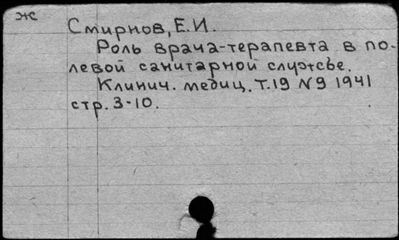 ж
Смирнов, Е.И.
Роль врача-терапевта в по-
левой санитарной службе.
Клинич. медиц. Т.19 №9 1941
стр. 3-10.